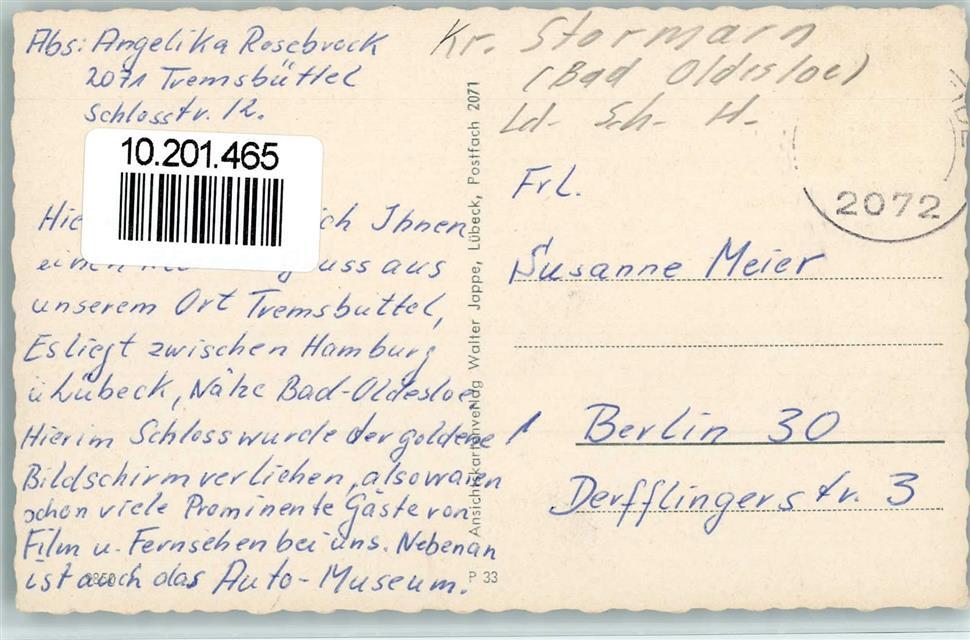 Abs: Angelika Rosebrock
2071 Tremsbüttel
Schlosstr. 12.
10.201.465
Hie ich Ihnen
einen uss aus
unserem Ort Tremsbüttel,
Es liegt zwischen Hamburg
u Lübeck, Nähe Bad-Oldesloe
Hier im Schloss wurde der goldene
Bildschirm verliehen, also waren
schon viele Prominente Gäste von
Film u. Fernsehen bei uns. Nebenan
ist auch das Auto-Museum.
Ansichtskartenverlag Walter Jappe, Lübeck, Postfach 2071
P 33
Kr. Stormarn
(Bad Oldesloe)
Ld. Sch. H.
2072
Frl.
Susanne Meier
1 Berlin 30
Derfflingerstr. 3